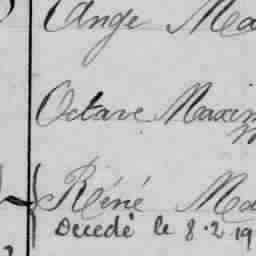 Ange Ma
Octave Maxim
Réné Ma
Decedé le 8.2 19